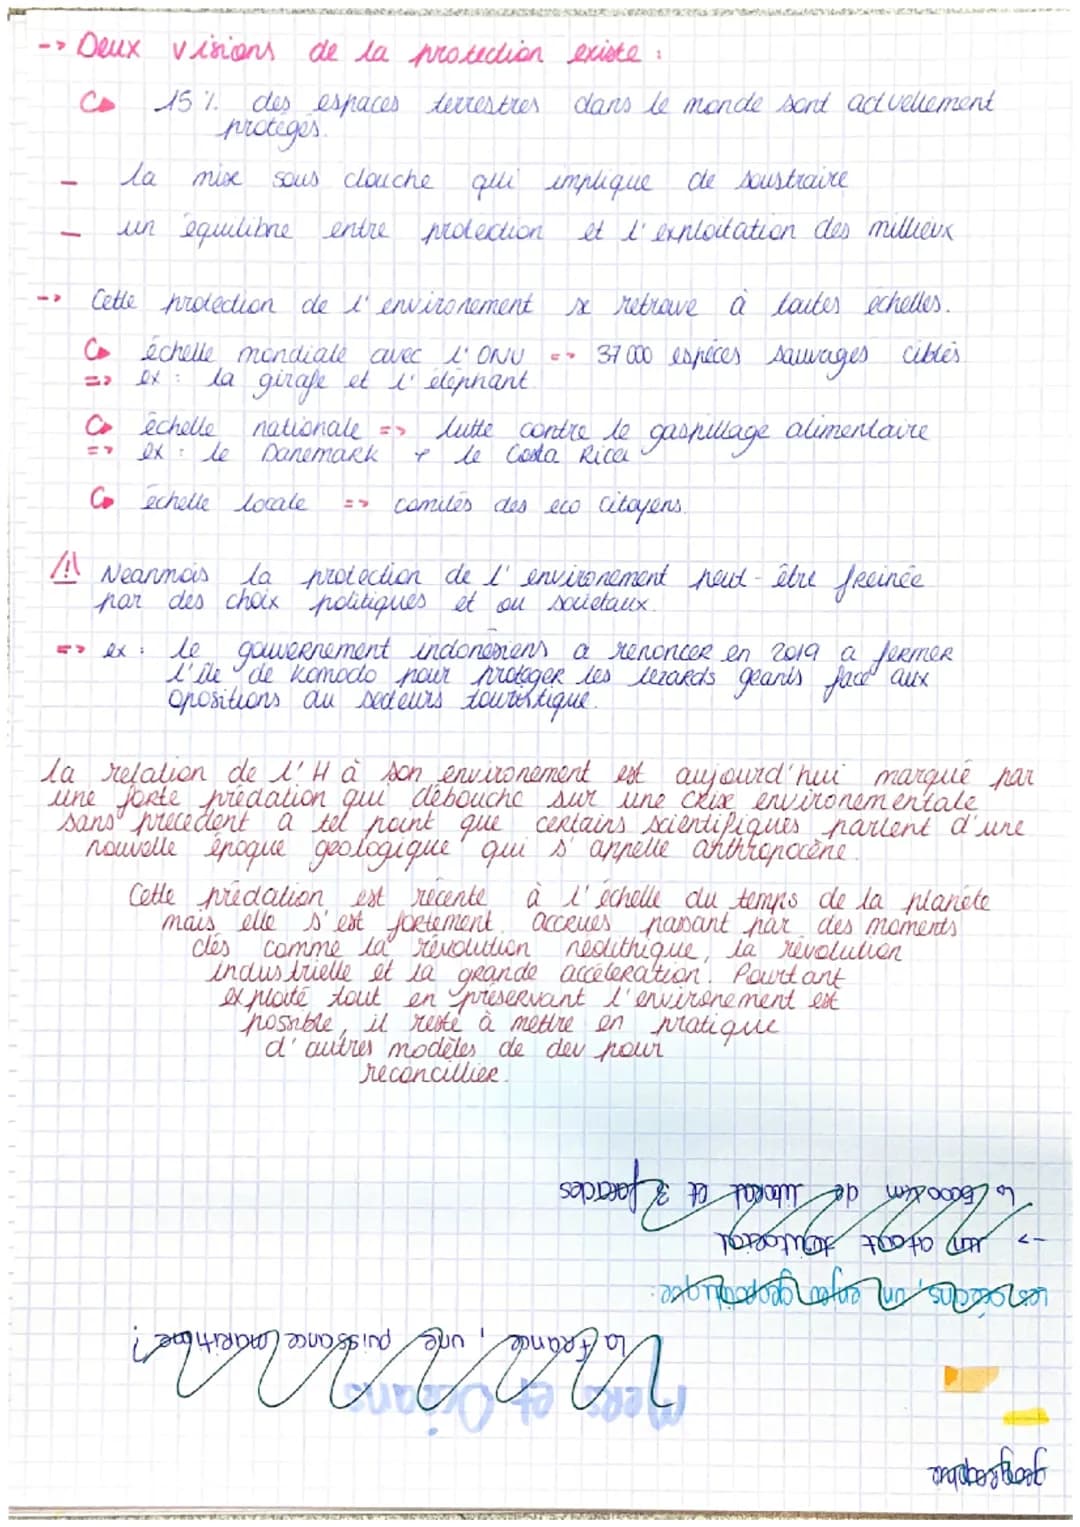 -> Deux visions de la protection existe :
15 % des espaces terrestres dans le monde sont actuellement
protégés.
- la mise sous clouche qui implique de soustraire
- un équilibre entre protection et l'exploitation des millieux
-> Cette protection de l'environement se retrouve à toutes échelles.
échelle mondiale avec l'ONU => 37 000 espèces sauvages ciblés
=> ex : la girafe et l'éléphant
échelle nationale => lutte contre le gaspillage alimentaire
=> ex : le Danemark + le Costa Rica
échelle locale => comités des eco citoyens.
⚠ Neanmois la protection de l'environement peut-être freinée
par des choix politiques et ou societaux.
=> ex : le gouvernement indonésiens a renoncer en 2019 a fermer
l'île de Komodo pour protéger les lezards geants face aux
opositions au secteurs touristique.
la relation de l'H à son environement est aujourd'hui marqué par
une forte prédation qui débouche sur une crise environementale
sans precedent a tel point que certains scientifiques parlent d'une
nouvelle époque geologique qui s'appelle anthropocène.
Cette prédation est récente à l'échelle du temps de la planète
mais elle s'est fortement accrues passant par des moments
clés comme la révolution néolithique, la révolution
industrielle et la grande accéleration. Pourtant
exploité tout en préservant l'environement est
possible, il reste à mettre en pratique
d'autres modèles de dev pour
reconcillier.
géographie
Mers et Océans
la France, une puissance maritime ?
Les océans, un enjeu geopolitique :
-> un atout territorial
de littoral et 3 facades